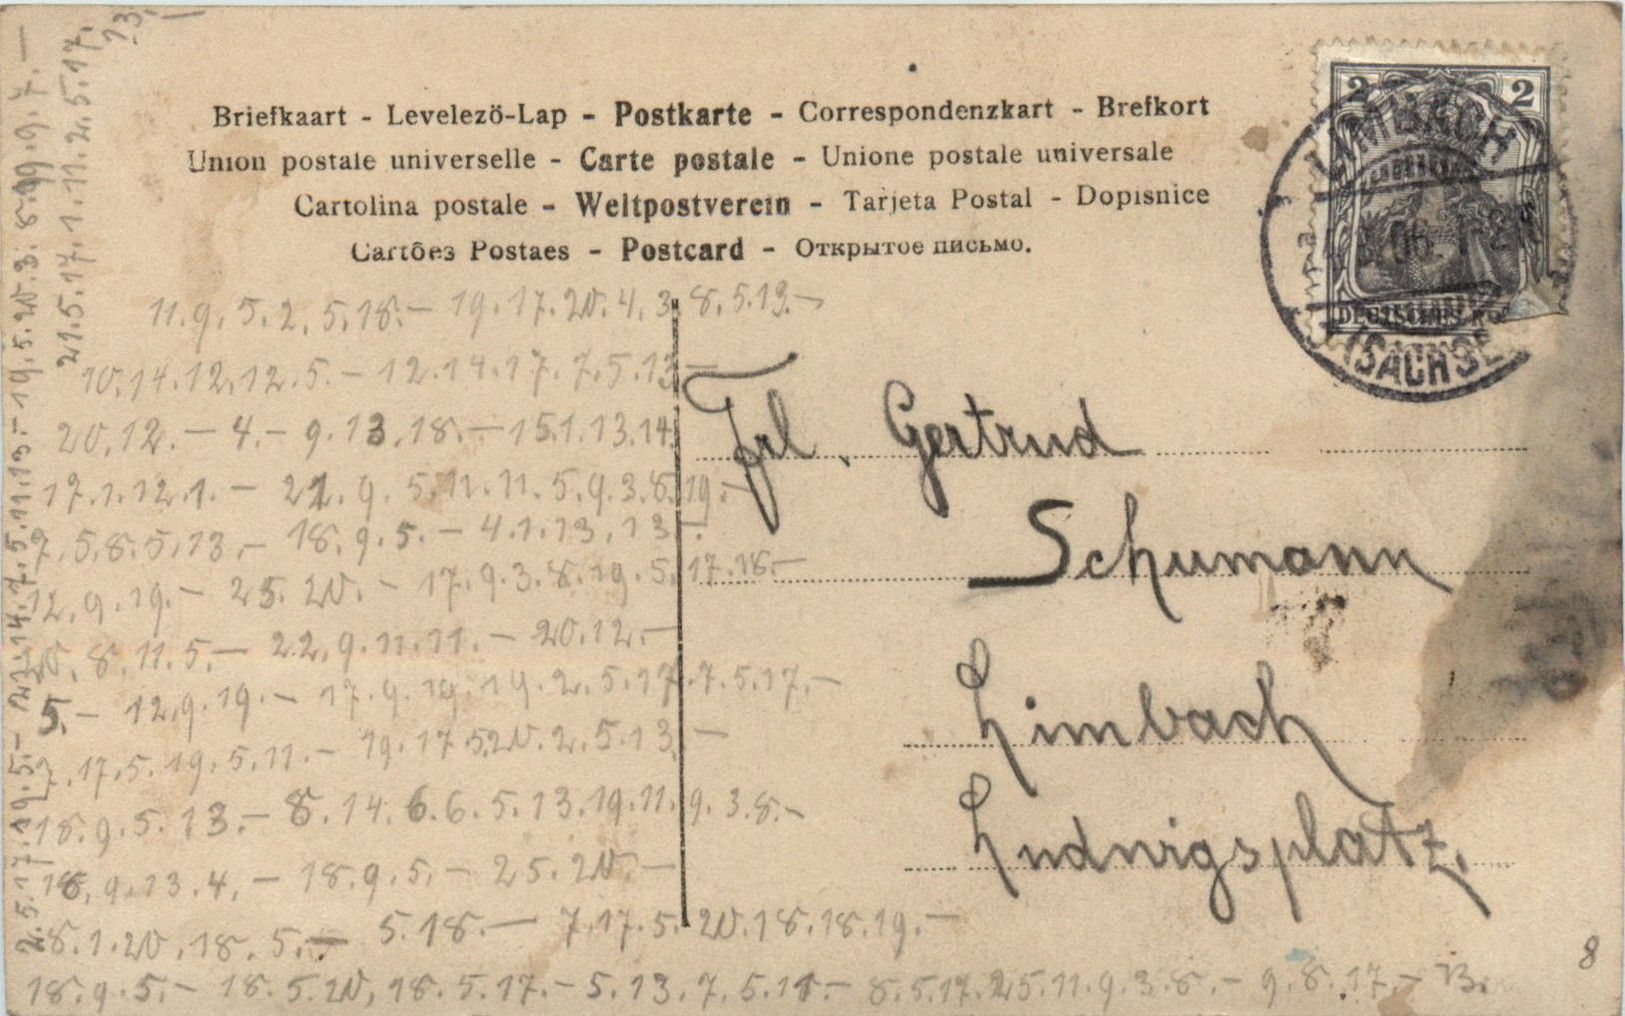 Briefkaart - Levelezö-Lap - Postkarte - Correspondenzkart - Brefkort
Union postale universelle - Carte postale - Unione postale universale
Cartolina postale - Weltpostverein - Tarjeta Postal - Dopisnice
Cartões Postaes - Postcard - Открытое письмо.
2 2
LIMBACH
(SACHSE
11.9.5.2.5.18.– 19.17.20.4.3.8.5.13.–
10.14.12.12.5.– 12.14.17.7.5.13.–
20.12.– 4.– 9.13.18.– 15.1.13.14.
17.1.12.1.– 21.9.5.11.11.5.9.3.8.19.–
7.5.8.5.13.– 18.9.5.– 4.1.13.13.–
12.9.19.– 25.20.– 17.9.3.8.19.5.17.18.–
20.8.11.5.– 22.9.11.11.– 20.12.–
5.– 12.9.19.– 17.9.19.19.2.5.17.7.5.17.–
7.17.5.19.5.11.– 19.17.5.20.2.5.13.–
18.9.5.13.– 8.14.6.6.5.13.19.11.9.3.8.–
18.9.13.4.– 18.9.5.– 25.20.–
8.1.20.18.5.– 5.18.– 7.17.5.20.18.18.19.–
18.9.5.– 18.5.20.18.5.17.– 5.13.7.5.11.– 8.5.17.25.11.9.3.8.– 9.8.17.– 13.
21.5.17.1.11.2.5.17.
13.
Frl. Gertrud
Schumann
Limbach
Ludwigsplatz.
8